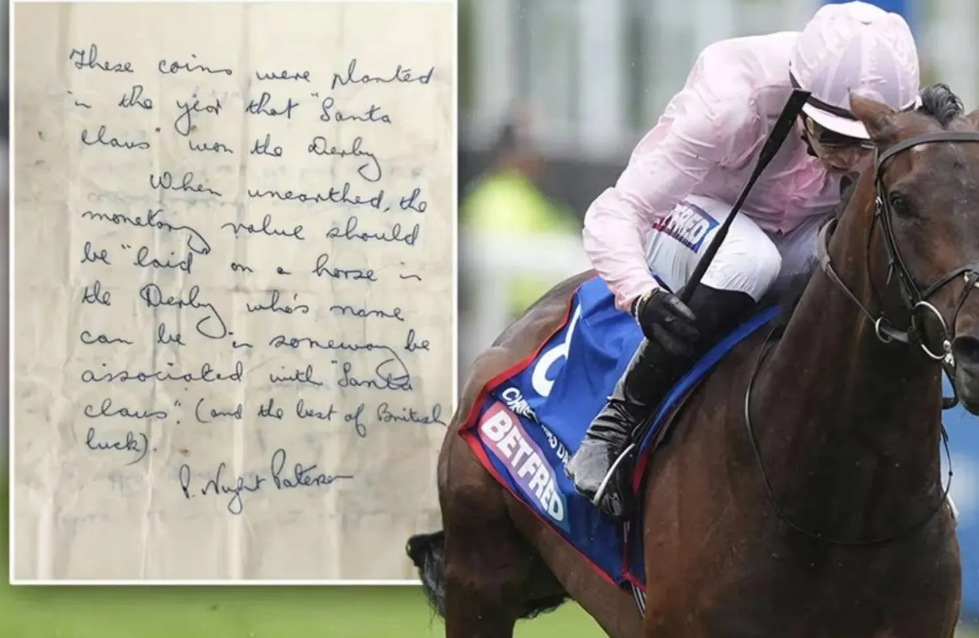 These coins were planted
in the year that "Santa
claus" won the Derby
When unearthed, the
monetary value should
be "laid" on a horse in
the Derby who's name
can be in someway be
associated with "Santa
claus". (and the best of British
luck).
P. Wright Paterson
BETFRED